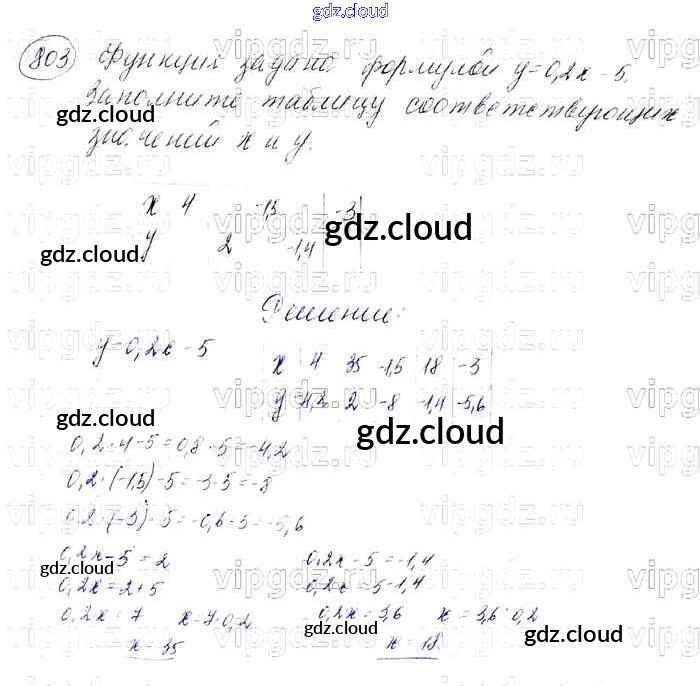 gdz.cloud
803 Функция задана формулой y=0,2x-5.
Заполните таблицу соответствующих
gdz.cloud
значений x и y.
x 4 -1,5 -3
gdz.cloud
y 2 -1,4
gdz.cloud
Решение:
y=0,2x-5
x 4 35 -1,5 18 -3
y -4,2 2 -8 -1,4 -5,6
gdz.cloud
gdz.cloud
0,2·4-5=0,8-5=-4,2
0,2·(-1,5)-5=-3-5=-8
0,2·(-3)-5=-0,6-5=-5,6
0,2x-5=2 0,2x-5=-1,4
gdz.cloud
0,2x=2+5 0,2x=5-1,4
gdz.cloud
0,2x=7 x=7:0,2 0,2x=3,6 x=3,6:0,2
gdz.cloud gdz.cloud gdz.cloud
x=35 x=18